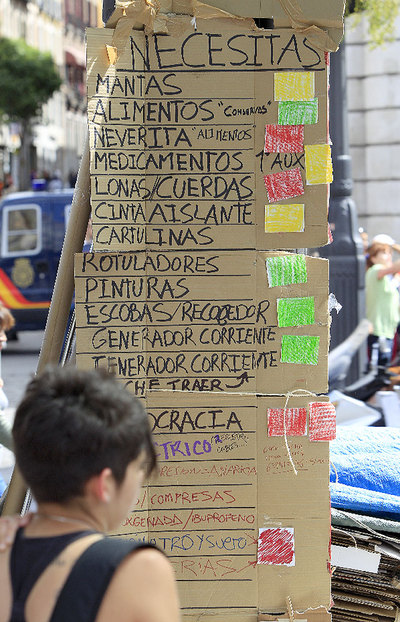 NECESITAS
MANTAS
ALIMENTOS "CONSERVAS"
NEVERITA "ALIMENTOS
MEDICAMENTOS 1ºAUX
LONAS/CUERDAS
CINTA AISLANTE
CARTULINAS
ROTULADORES
PINTURAS
ESCOBAS/RECOGEDOR
GENERADOR CORRIENTE
GENERADOR CORRIENTE
CHE TRAER
OCRACIA
TRICO
/COMPRESAS
OXGENADA/IBUPROFENO
Y SUERO